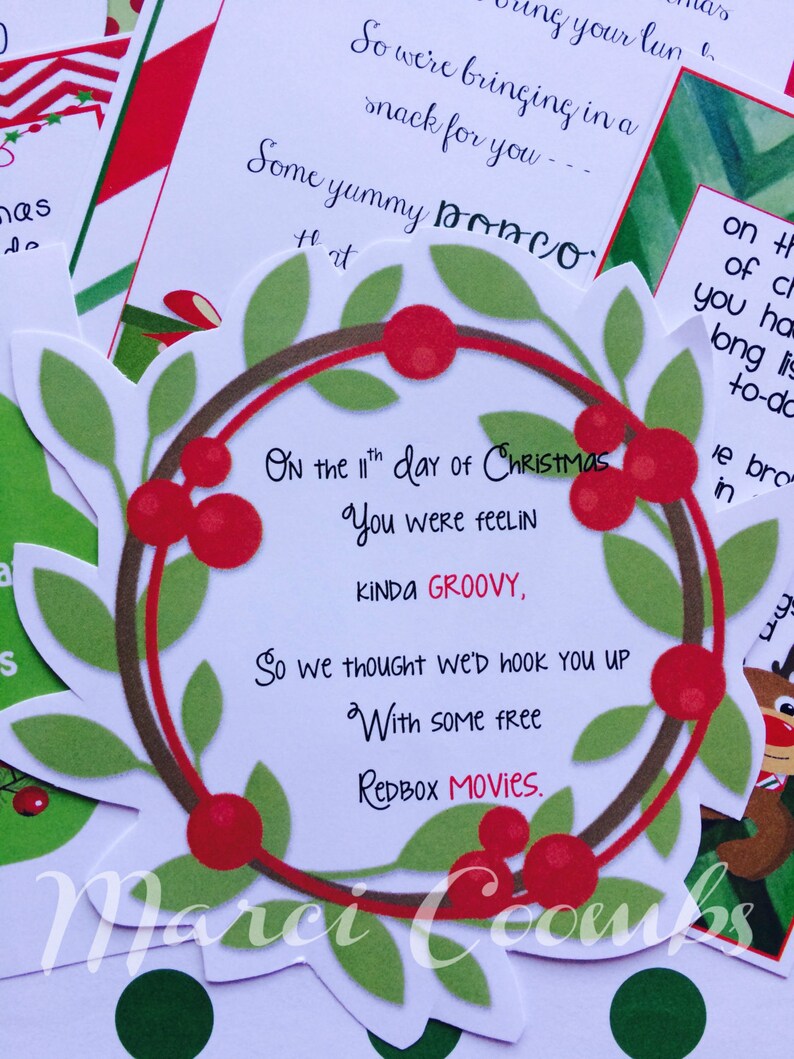 0
bring your lunch
So we're bringing in a
snack for you - - -
Some yummy
that
mas
de
on th
of ch
you ha
long lis
to-do
in
s
On the 11th day of Christmas
You were feelin
kinda GROOVY,
So we thought we'd hook you up
With some free
Redbox MOVIES.
Marci Coombs